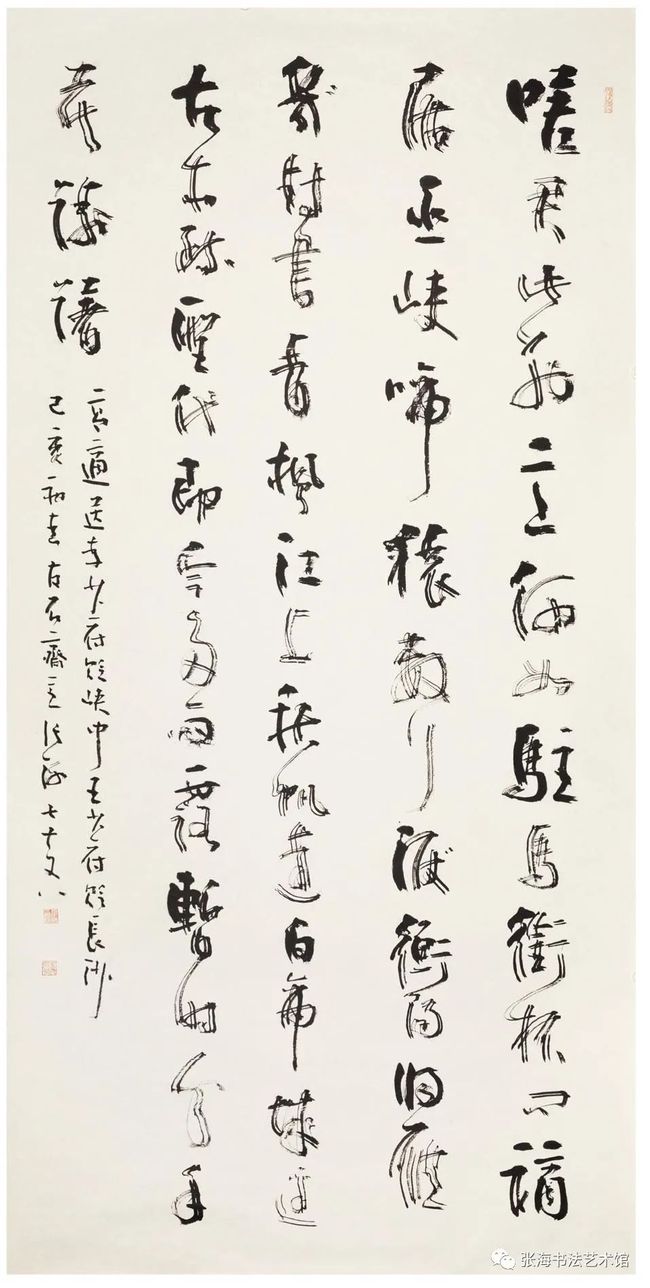 嗟君此别意何如駐馬銜杯问謫
居巫峡啼猿數行淚衡陽归雁
幾封書青楓江上秋帆遠白帝城边
古木疏聖代即今多雨露暫时分手
莫躊躇
高適送李少府贬峡中王少府贬長沙
己亥初春古石齋主张海七十又八
张海书法艺术馆